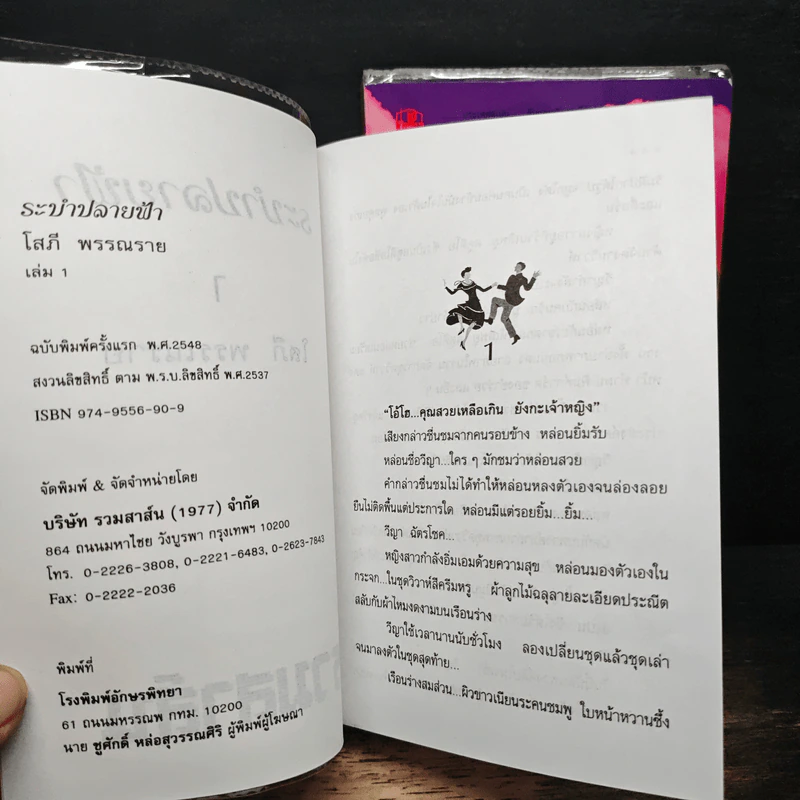 ระบำปลายฟ้า
โสภี พรรณราย
เล่ม 1
ฉบับพิมพ์ครั้งแรก พ.ศ.2548
สงวนลิขสิทธิ์ ตาม พ.ร.บ.ลิขสิทธิ์ พ.ศ.2537
ISBN 974-9556-90-9
จัดพิมพ์ & จัดจำหน่ายโดย
บริษัท รวมสาส์น (1977) จำกัด
864 ถนนมหาไชย วังบูรพา กรุงเทพฯ 10200
โทร. 0-2226-3808, 0-2221-6483, 0-2623-7843
Fax: 0-2222-2036
พิมพ์ที่
โรงพิมพ์อักษรพิทยา
61 ถนนมหรรณพ กทม. 10200
นาย ชูศักดิ์ หล่อสุวรรณศิริ ผู้พิมพ์ผู้โฆษณา
1
“โอ้โฮ...คุณสวยเหลือเกิน ยังกะเจ้าหญิง”
เสียงกล่าวชื่นชมจากคนรอบข้าง หล่อนยิ้มรับ
หล่อนชื่อวีญา...ใคร ๆ มักชมว่าหล่อนสวย
คำกล่าวชื่นชมไม่ได้ทำให้หล่อนหลงตัวเองจนล่องลอย
ยืนไม่ติดพื้นแต่ประการใด หล่อนมีแต่รอยยิ้ม...ยิ้ม...
วีญา ฉัตรโชค...
หญิงสาวกำลังอิ่มเอมด้วยความสุข หล่อนมองตัวเองใน
กระจก...ในชุดวิวาห์สีครีมหรู ผ้าลูกไม้ฉลุลายละเอียดประณีต
สลับกับผ้าไหมงดงามบนเรือนร่าง
วีญาใช้เวลานานนับชั่วโมง ลองเปลี่ยนชุดแล้วชุดเล่า
จนมาลงตัวในชุดสุดท้าย...
เรือนร่างสมส่วน...ผิวขาวเนียนระคนชมพู ใบหน้าหวานซึ้ง